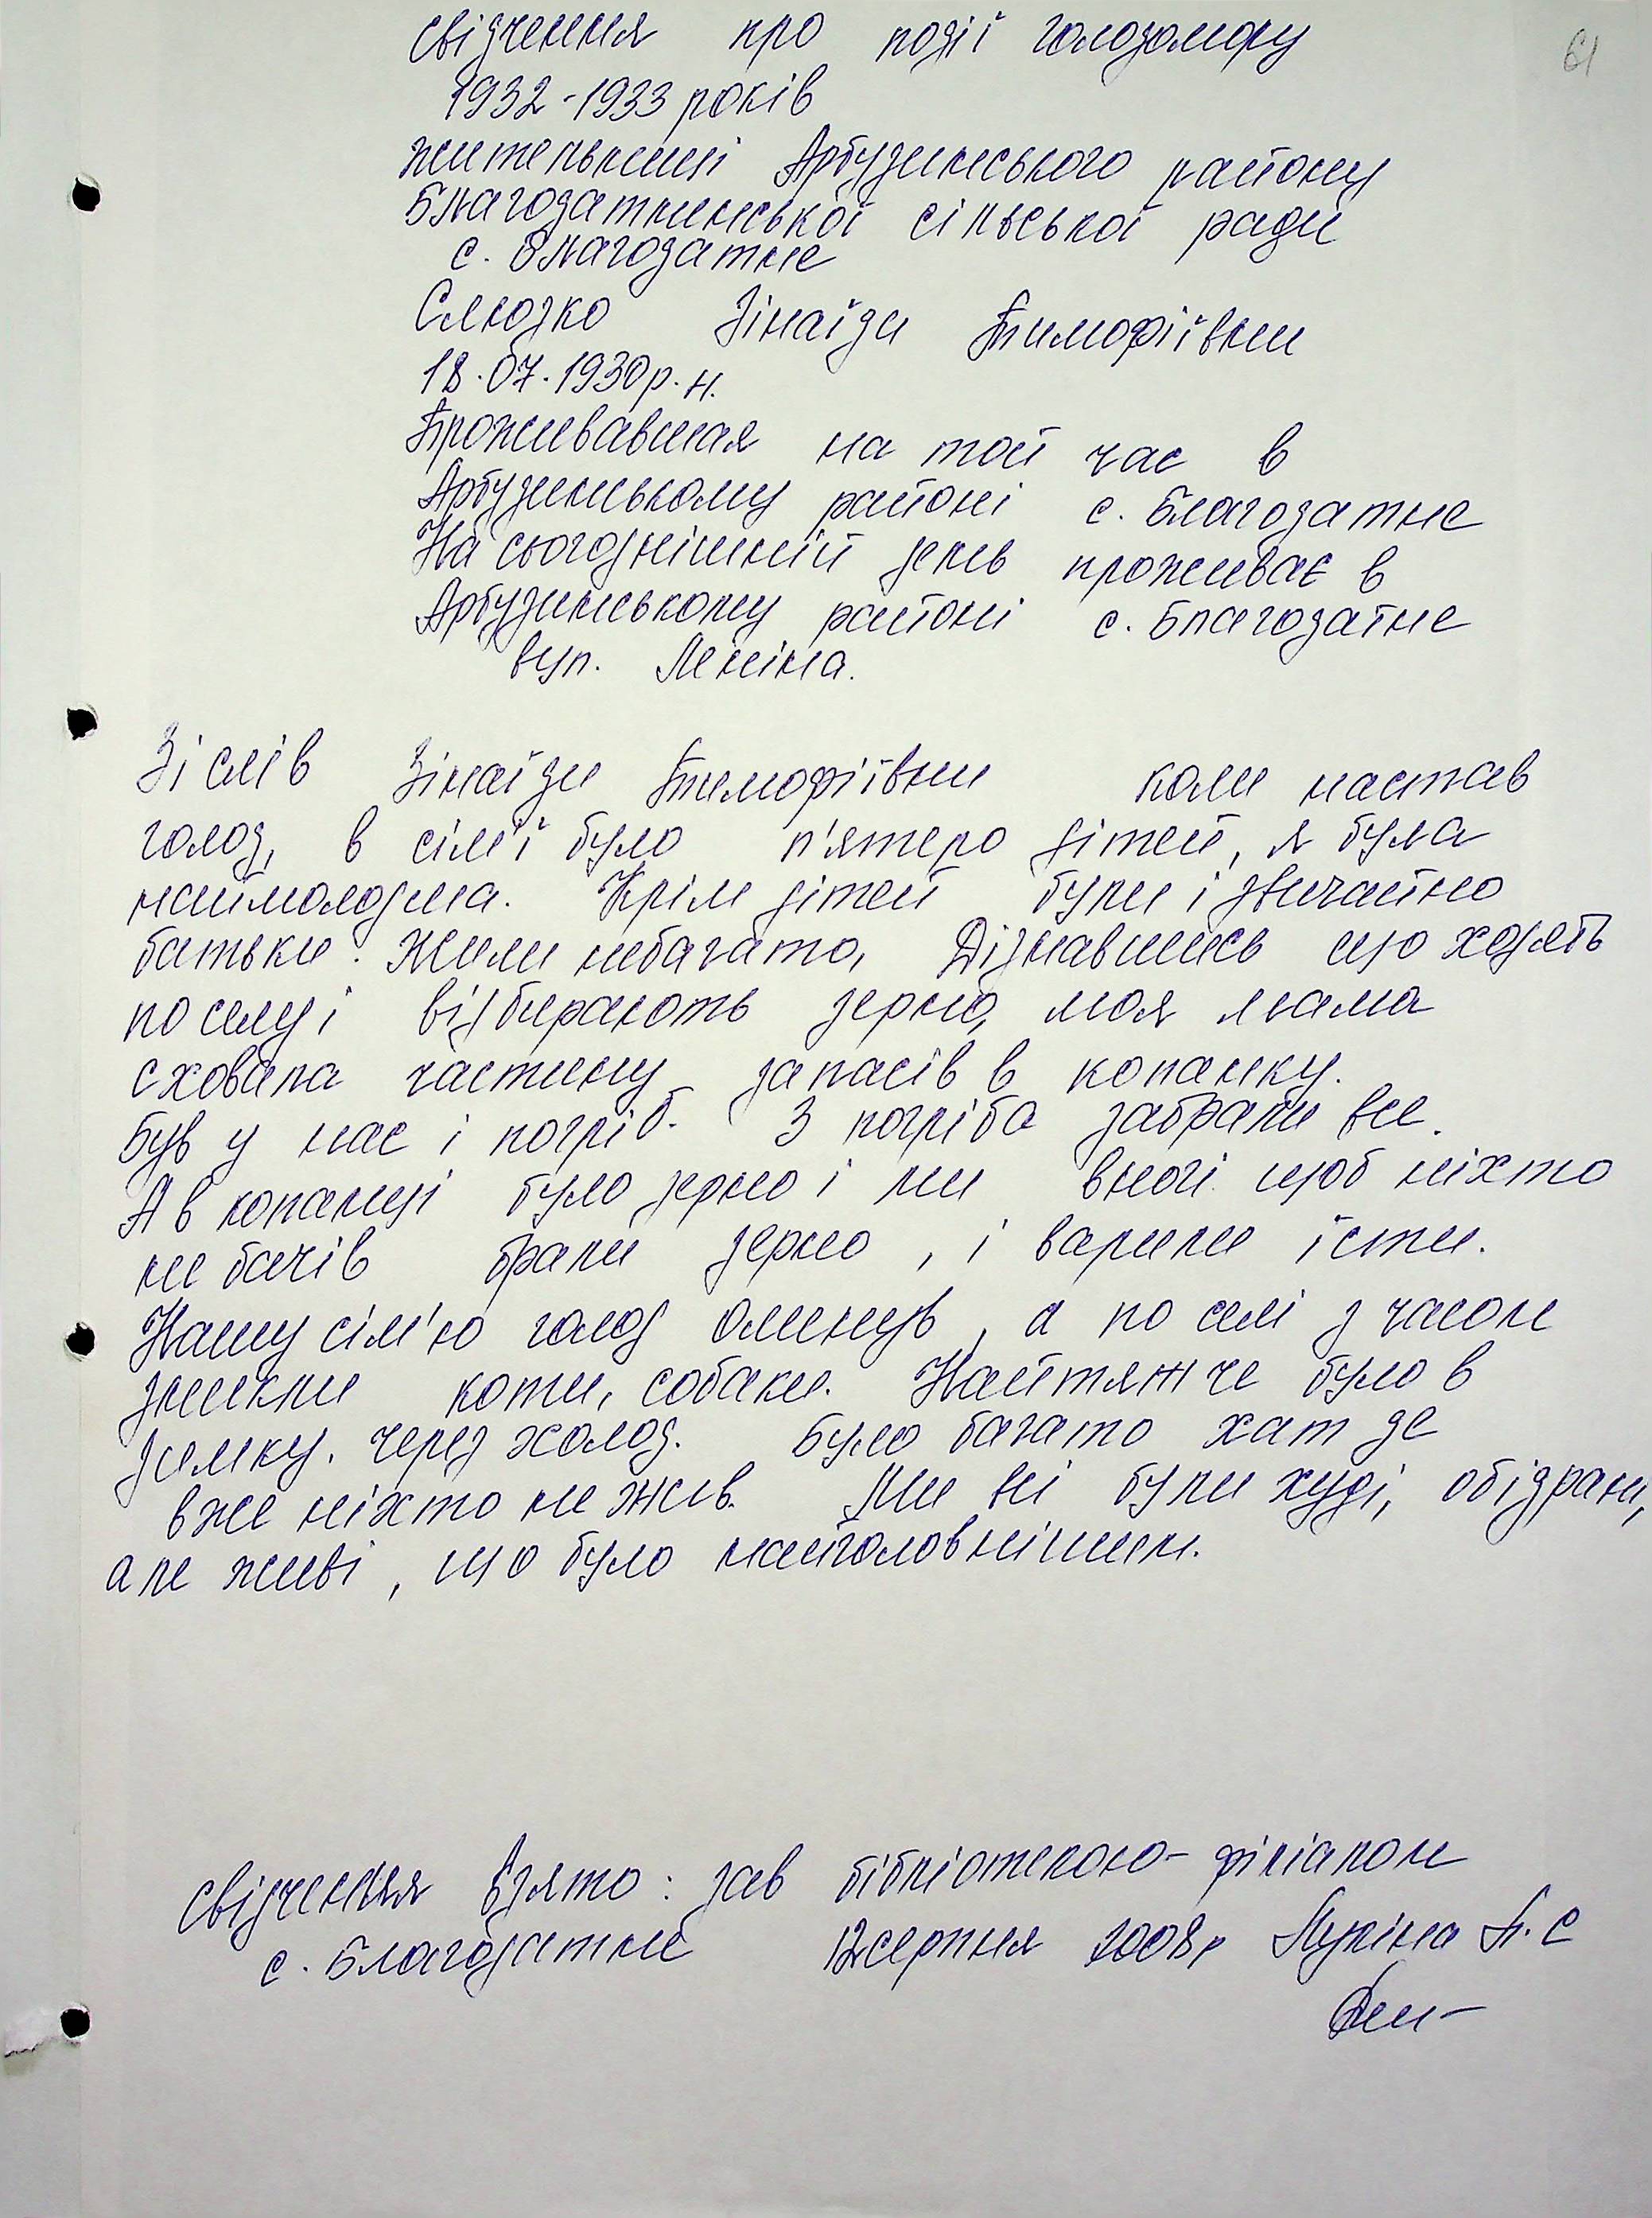 61
свідчення про події голодомору
1932-1933 років
жительниці Арбузинського району
Благодатнинської сільської ради
с. Благодатне
Слюзко Зінаїди Тимофіївни
18.07.1930р.н.
Проживавшая на той час в
Арбузинському районі с. Благодатне
На сьогоднішній день проживає в
Арбузинському районі с. Благодатне
вул. Леніна.
Зі слів Зінаїди Тимофіївни коли настав
голод, в сім'ї було п'ятеро дітей, я була
наймолодша. Крім дітей були і звичайно
батьки. Жили небагато, Дізнавшись що ходять
по селу і відбирають зерно, моя мама
сховала частину запасів в копанку.
Був у нас і погріб. З погріба забрали все.
А в копанці було зерно і ми вночі щоб ніхто
не бачів брали зерно, і варили їсти.
Нашу сім'ю голод оминув, а по селі з часом
зникли коти, собаки. Найтяжче було в
зимку. через холод. Було багато хат де
вже ніхто не жив. Ми всі були худі, обідрані,
але живі, що було найголовнішим.
свідчення взято: зав бібліотекою-філіалом
с. Благодатне 12серпня 2008р